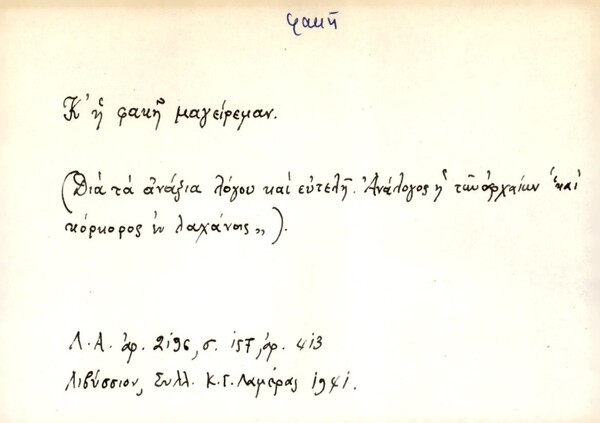 φακῆ
Κ' ἡ φακῆ μαγείρεμαν.
(Διὰ τὰ ἀνάξια λόγου καὶ εὐτελῆ. Ἀνάλογος ἡ τῶν ἀρχαίων "καὶ
κόρκορος ἐν λαχάνοις").
Λ.Α. ἀρ. 2196, σ. 157, ἀρ. 413
Λιβύσσιον, Συλλ. Κ.Γ. Λαμέρας 1941.